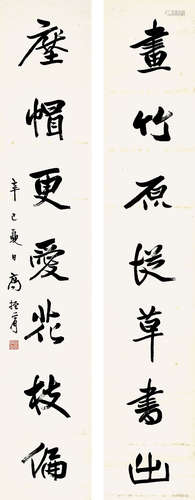 畫竹原從草書出
壓帽更愛花枝偏
辛巳夏日 高振霄